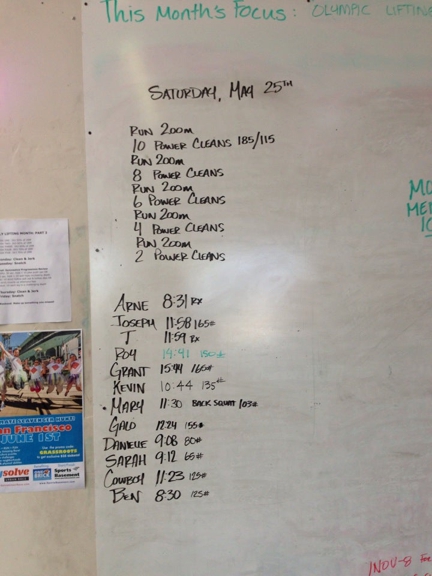 This Month's Focus: OLYMPIC LIFTING
SATURDAY, MAY 25TH
RUN 200m
10 POWER CLEANS 185/115
RUN 200m
8 POWER CLEANS
RUN 200m
6 POWER CLEANS
RUN 200m
4 POWER CLEANS
RUN 200m
2 POWER CLEANS
ARNE 8:31 RX
JOSEPH 11:58 165#
T 11:59 RX
ROY 14:41 150#
GRANT 15:44 165#
KEVIN 10:44 135#
MARY 11:30 BACK SQUAT 103#
GALO 12:24 155#
DANIELLE 9:08 80#
SARAH 9:12 65#
COWBOY 11:23 125#
BEN 8:30 125#
MO
ME
10
San Francisco
JUNE 1ST
GRASSROOTS
Sports
Basement
INOV-8 FOR